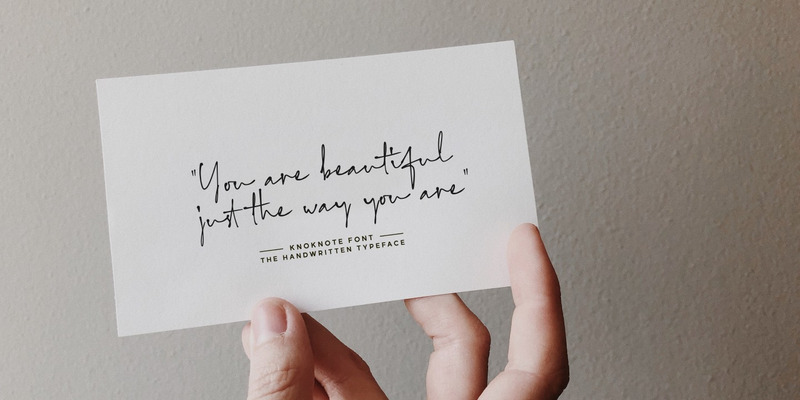 "You are beautiful
just the way you are"
KNOKNOTE FONT
THE HANDWRITTEN TYPEFACE